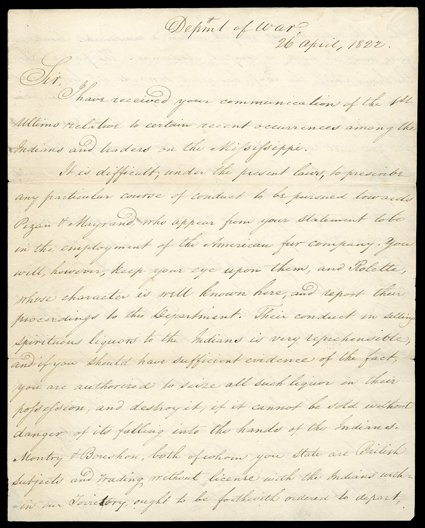 Depmt of War
26 April, 1822.
Sir,
I have received your communication of the 1st
Ultimo relative to certain recent occurrences among the
Indians and traders on the Mississippi.
It is difficult, under the present laws, to prescribe
any particular course of conduct to be pursued towards
Pizan & Mayrand, who appear from your statement to be
in the employment of the American fur company. You
will, however, keep your eye upon them, and Rolette,
whose character is well known here, and report their
proceedings to this Department. Their conduct in selling
Spirituous liquors to the Indians is very reprehensible,
and if you should have sufficient evidence of the fact,
you are authorered to seize all such liquor in their
possession, and destroy it, if it cannot be sold without
danger of its falling into the hands of the Indians.
Montry & Brishou, both of whom you State are British
Subjects and trading without license with the Indians with-
in our Territory ought to be forthwith ordered to depart,